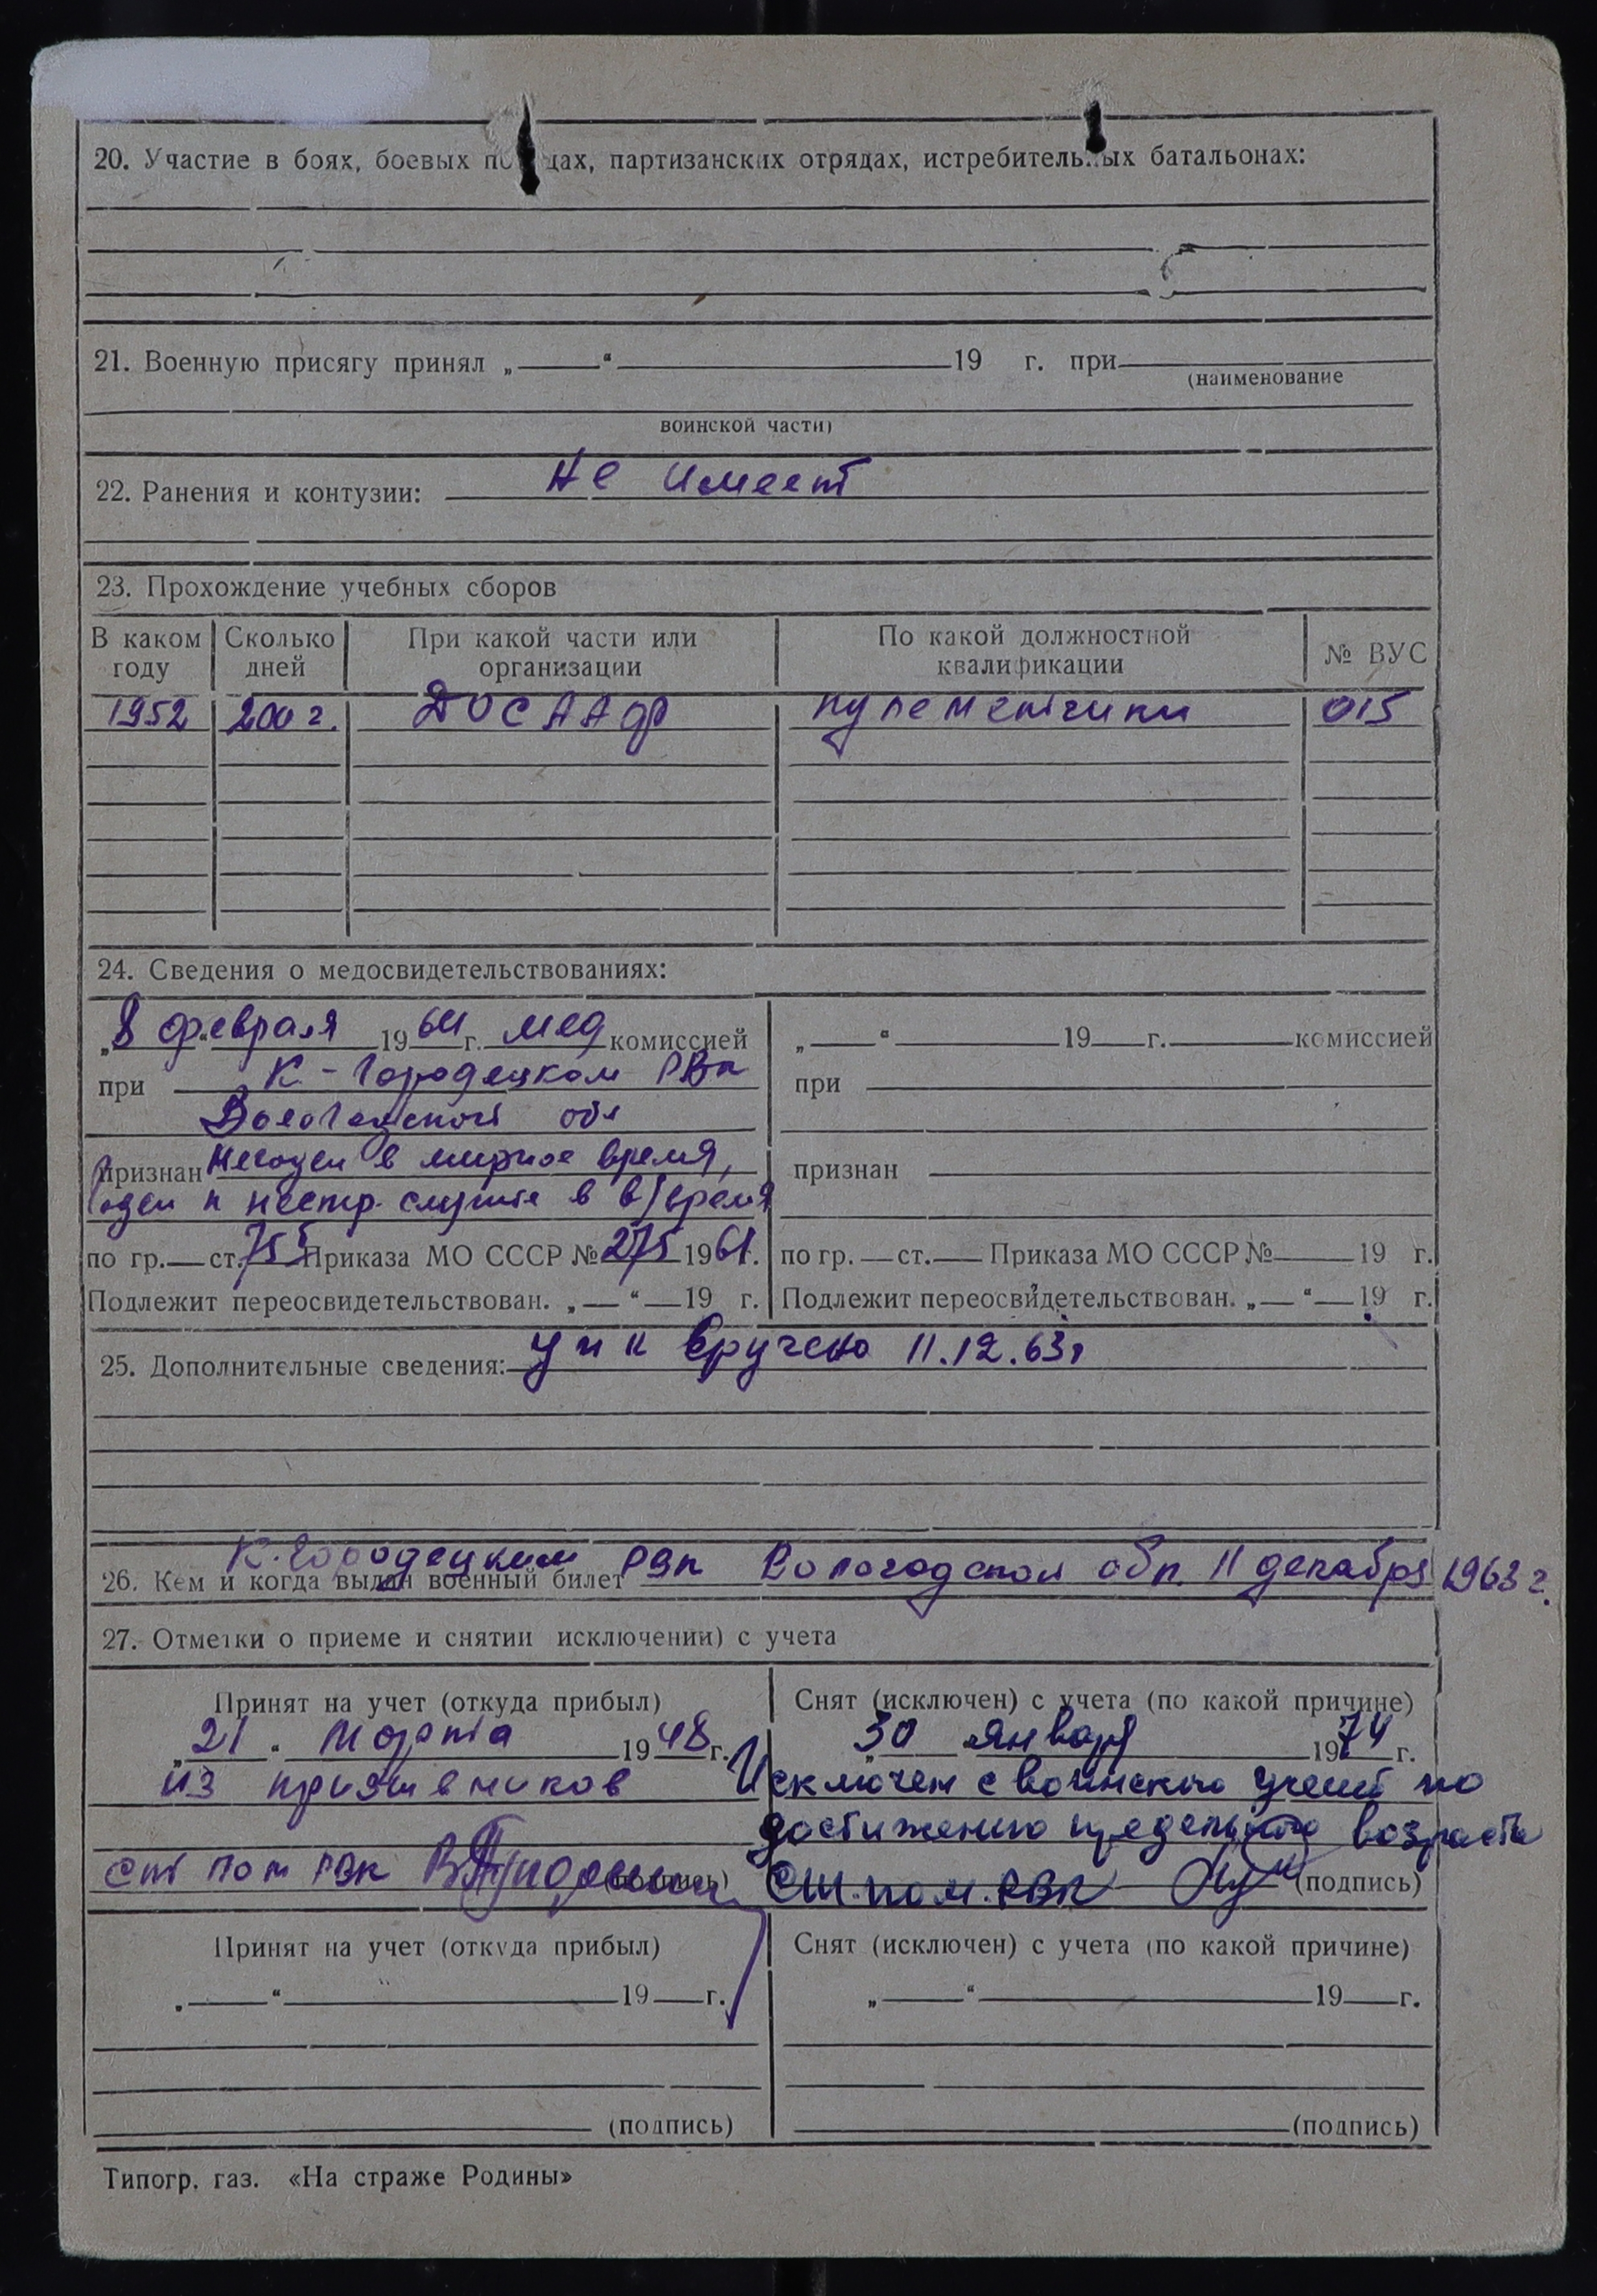 20. Участие в боях, боевых по дах, партизанских отрядах, истребительных батальонах:
21. Военную присягу принял „ “ 19 г. при
(наименование
воинской части)
22. Ранения и контузии: не имеет
23. Прохождение учебных сборов
В каком году Сколько дней При какой части или организации По какой должностной квалификации № ВУС
1952 200 г. ДОСААФ пулеметчики 015
24. Сведения о медосвидетельствованиях:
„8“ февраля 1964 г. мед комиссией „ “ 19 г. комиссией
при К-Городецком РВк при
Вологодской обл
признан Негоден в мирное время, признан
годен к нестр. службе в в/время
по гр. ст. 75 Приказа МО СССР № 275 1961г. по гр. ст. Приказа МО СССР № 19 г.
Подлежит переосвидетельствован. „ “ 19 г. Подлежит переосвидетельствован. „ “ 19 г.
25. Дополнительные сведения: вручено 11.12.63г
К.Городецким РВк Вологодской обл. 11 декабря 1963 г.
26. Кем и когда выдан военный билет
27. Отметки о приеме и снятии исключении) с учета
Принят на учет (откуда прибыл) Снят (исключен) с учета (по какой причине)
„21“ марта 1948 г. 30 января 1974 г.
из призывников Исключен с воинского учета по
достижению предельного возраста
ст пом РВк (подпись) Ст. пом. РВК (подпись)
Принят на учет (откуда прибыл) Снят (исключен) с учета (по какой причине)
„ “ 19 г. „ “ 19 г.
(подпись) (подпись)
Типогр. газ. «На страже Родины»